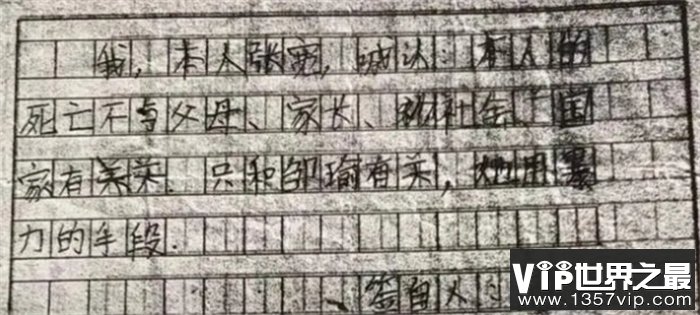 我，本人张宽，诚认：本人的
死亡不与父母、家长、和社会、国
家有关关.只和邹瑜有关，她用暴
力的手段.
签自人
VIP世界之最
www.1357vip.com